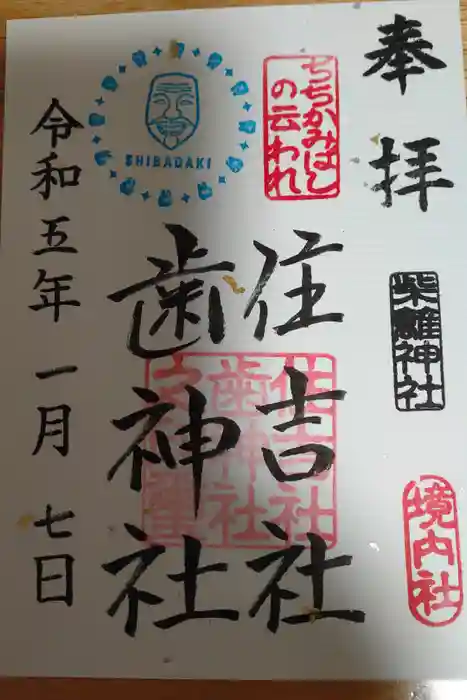 奉拝
柴籬神社
境内社
ちちかみばし
の云われ
住吉社
歯神社
SHIBAGAKI
住吉社
歯神社
令和五年 一月 七日